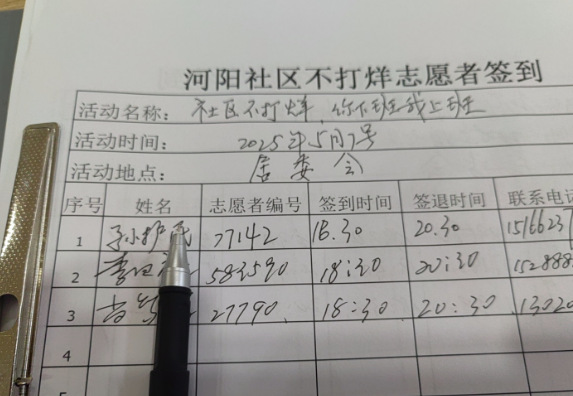 河阳社区不打烊志愿者签到
活动名称: 社区不打烊,你下班我上班
活动时间: 2025年5月7号
活动地点: 居委会
序号 姓名 志愿者编号 签到时间 签退时间 联系电话
1 77142 18.30 20.30 1516623
2 583590 18:30 20:30 152888
3 27790 18:30 20:30 13020
4